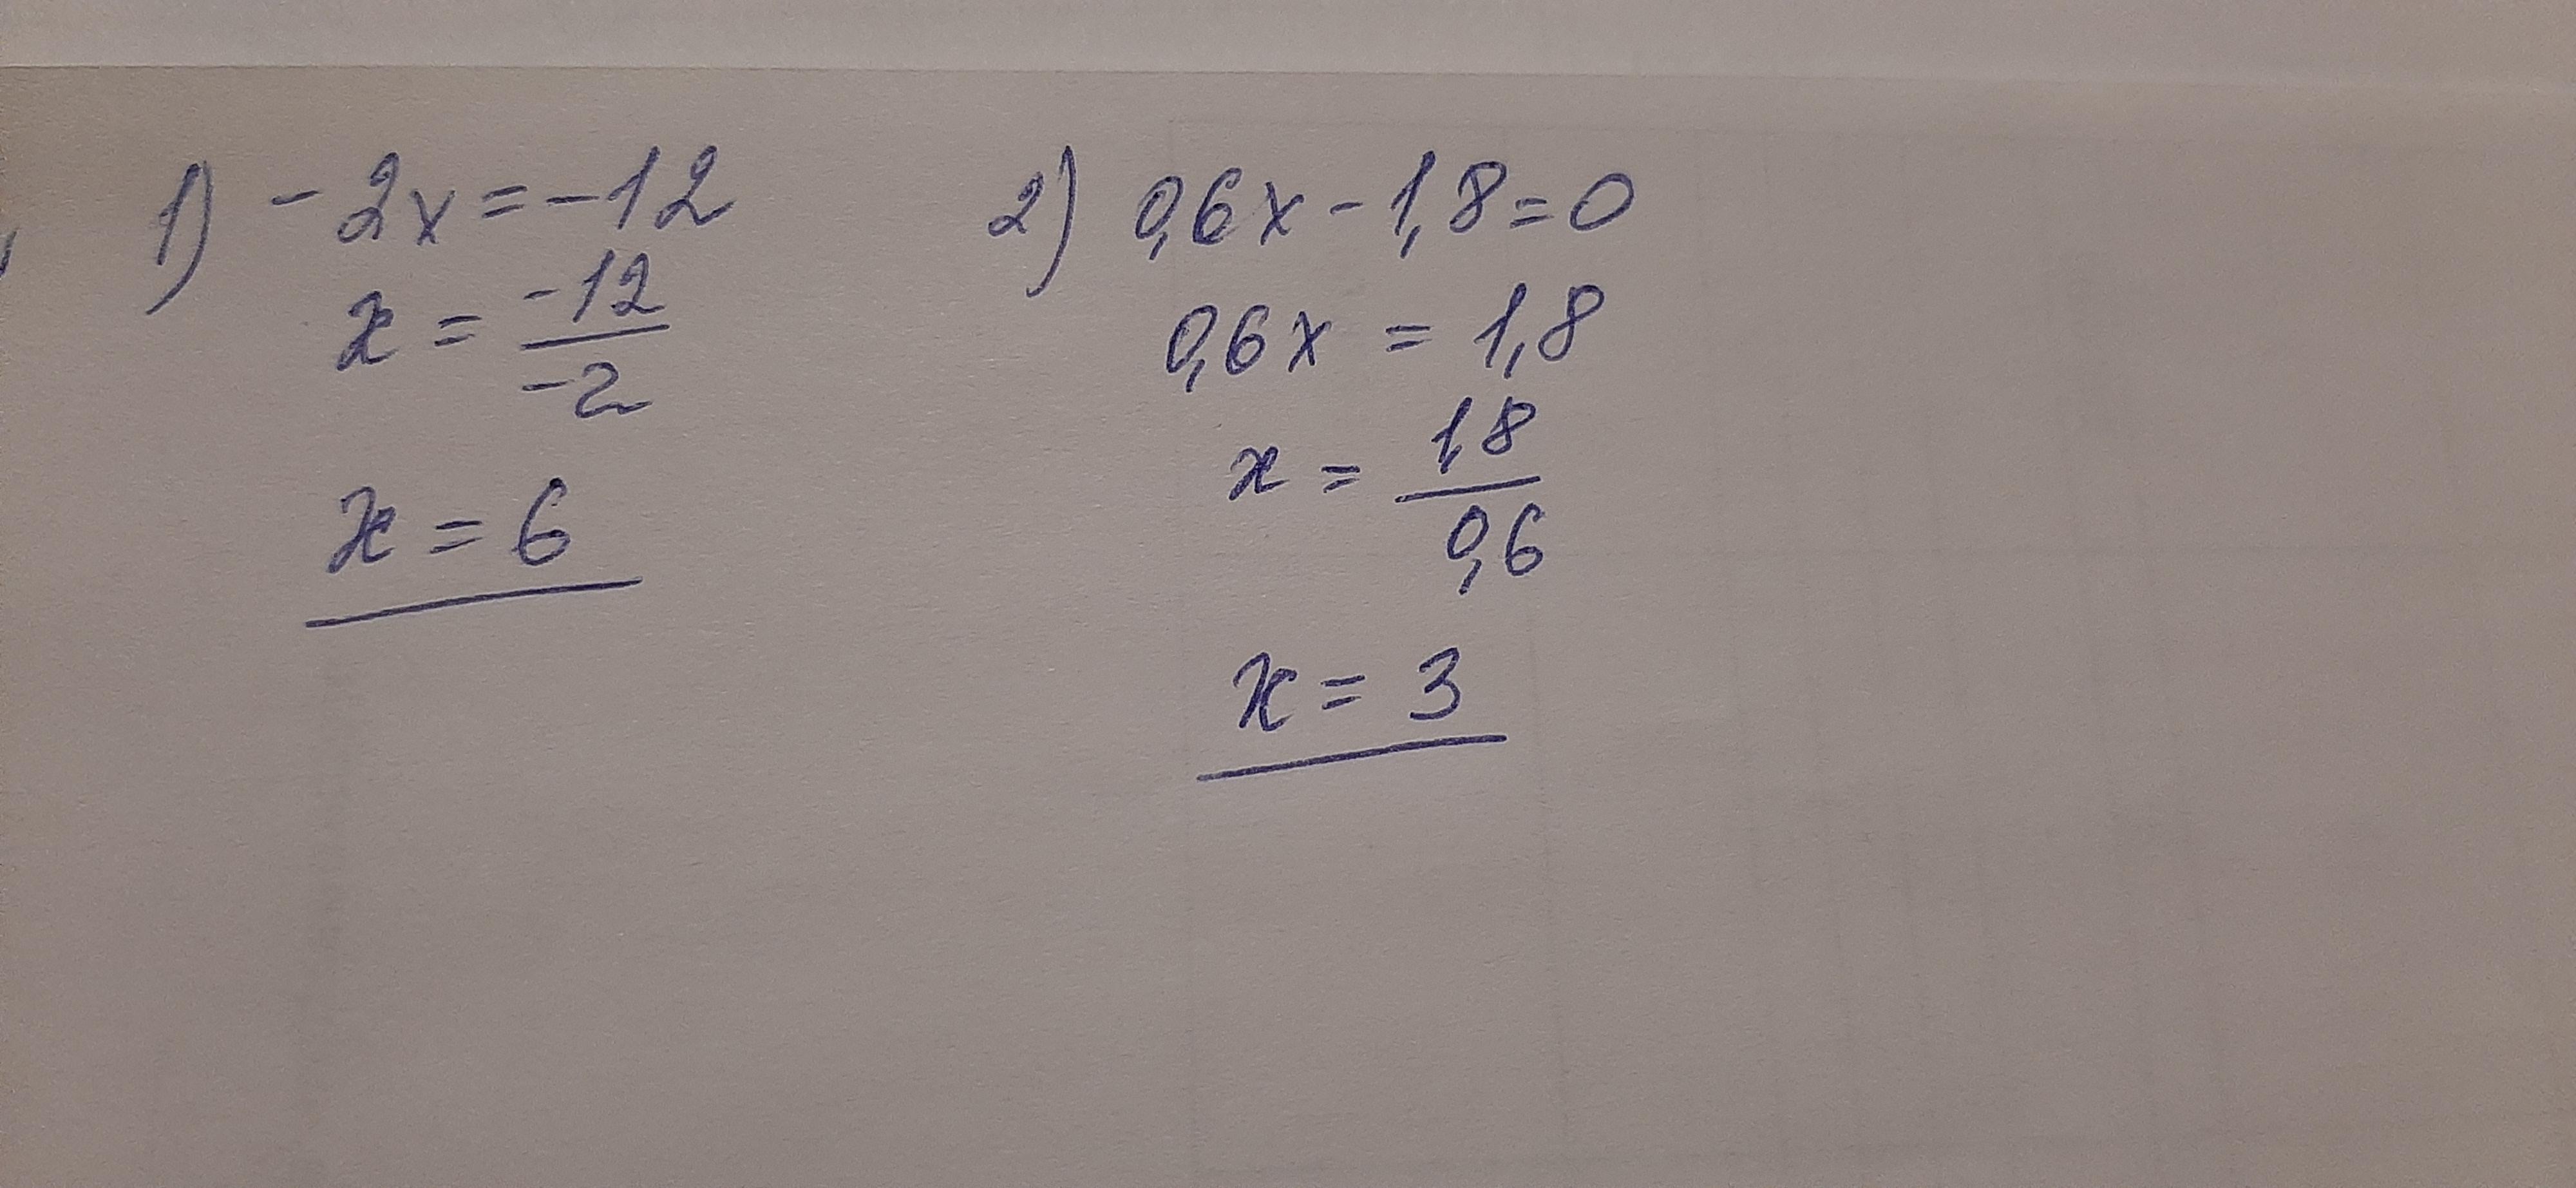 1) -2x=-12
x = -12/-2
x = 6
2) 0,6x-1,8=0
0,6x = 1,8
x = 1,8/0,6
x = 3